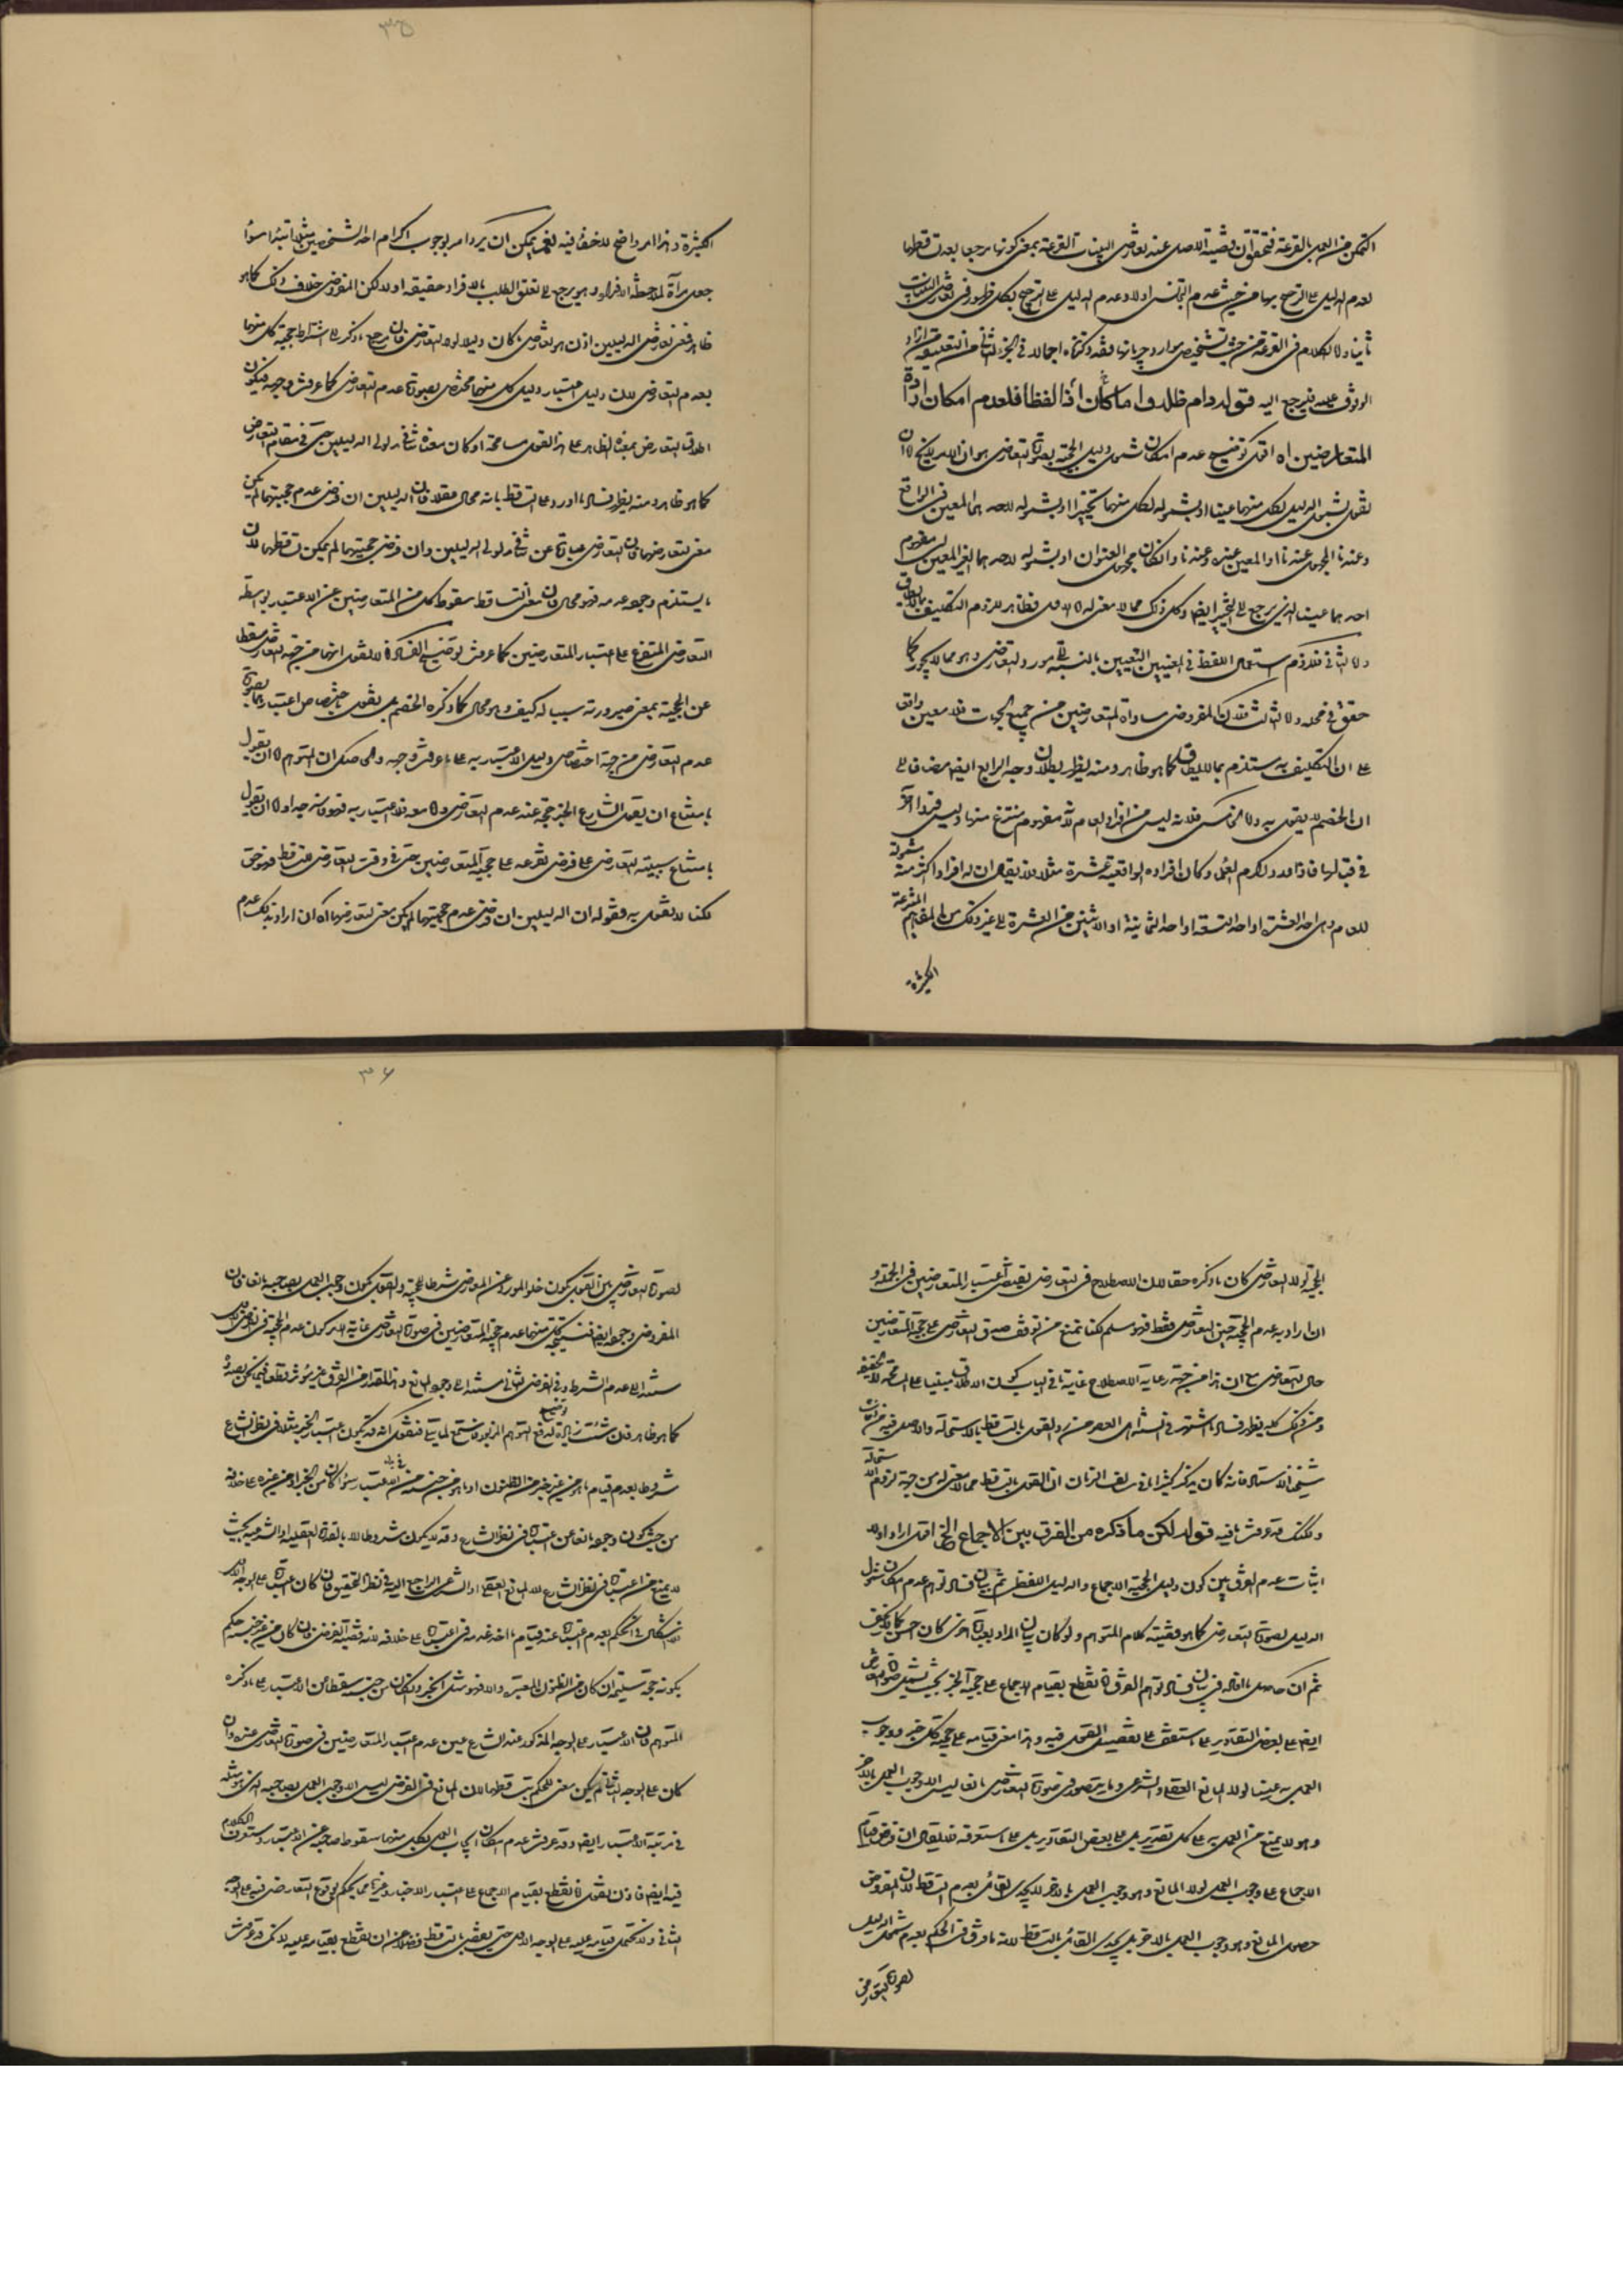 ٣٥
التمكن من العمل بالقرعة فتحقق ان قضية الاصل عند تعارض البينات القرعة بمعنى كونها مرجحا بعد تساقطهما
لعدم الدليل على الترجيح بها من حيث عدم التجانس اولا وعدم الدليل على الترجيح بكل ظهور في تعارض البينات
ثانيا واما الكلام في القرعة من حيث تشخيص مواردها وجريانها فقد ذكرناه اجمالا في الجزء الثاني من التعليقة من اراد
الوقوف عليه فليرجع اليه قوله دام ظله واما ما كان اذا لفظا فلعدم امكان ارادة
المتعارضين اه اقول توضيح عدم امكان شمول دليل الحجية بصورة التعارض هو ان الامر لا يخلو اما ان
نقول بشمول الدليل لكل منهما عينا او بشموله لكل منهما تخييرا او بشموله لاحدهما المعين في الواقع
وعندنا المجهول عندنا او المعين عنده وعندنا وان كان مجهول العنوان او بشموله لاحدهما الغير المعين اى مفهوم
احدهما عينا الذي يرجع الى التخيير ايضا وكل ذلك مما لا معنى له اما الاول فظاهر للزوم التكليف بما لا يطاق
واما الثاني فللزوم استعمال اللفظ في المعنيين التعيين بالنسبة الى غير مورد التعارض وهو مما لا يجوز كما
حقق في محله واما الثالث فلان المفروض مساواة المتعارضين من جميع الجهات فلا معين واقعا
على ان التكليف به مستلزم بما لا يطاق كما هو ظاهر ومنه يظهر بطلان وجه الرابع ايضا مضافا الى
ان الخصم لا يقول به واما الخامس فلانه ليس من افراد العام لانه مفهوم منتزع منها وليس فردا آخر
في قبالها فاذا ورد اكرم العلماء وكان افراده الواقعية عشرة مثلا فلا يقال ان له افرادا كثيرة مشمولة
للعام وهى احد العشرة او احد التسعة او احد الثمانية او الاثنين من العشرة الى غير ذلك من المفاهيم المنتزعة
الكثيرة
الكثيرة وهذا امر واضح لا خفاء فيه نعم يمكن ان يرد امر بوجوب اكرام احد الشخصين مثلا ابتداء سواء
جعل مرآة لملاحظة الافراد وهو يرجع الى تعلق الطلب بالافراد حقيقة او لا لكن المفروض خلاف ذلك كما هو
ظاهر فمعنى تعارض الدليلين اذن هو تعارض ما كان دليلا لولا التعارض فان مرجع ما ذكر الى اشتراط حجية كل منهما
بعدم التعارض لان دليل اعتبار دليل كل منهما مختص بصورة عدم التعارض كما عرفت وجهه فيكون
اطلاق التعارض بمعناه الظاهر على هذا القول مسامحة او كان معناه تنافي مدلولي الدليلين حتى في مقام التعارض
كما هو ظاهر ومنه يظهر فساد ما اورد على التساقط بانه محال عقلا فان الدليلين ان فرض عدم حجيتهما لم يكن
معنى لتعارضهما فان التعارض عبارة عن تنافي مدلولي الدليلين وان فرض حجيتهما لم يمكن تساقطهما لان
ما يستلزم وجوده عدمه فهو محال فان معنى التساقط سقوط كل من المتعارضين عن الاعتبار بواسطة
التعارض المتفرع على اعتبار المتعارضين كما عرفت توضيح الفساد انا لا نقول انهما من جهة التعارض يسقط
عن الحجية بمعنى صيرورته سببا له كيف وهو محال كما ذكره الخصم بل نقول باختصاص اعتبارهما بصورة
عدم التعارض من جهة اختصاص دليل الاعتبار به على ما عرفت وجهه والحاصل ان المتوهم اما ان يقول
بامتناع ان يقول الشارع الخبر حجة عند عدم التعارض واما معه فلا اعتبار به فهو فاسد جدا واما ان يقول
بامتناع سببية التعارض على فرض تفرعه على حجية المتعارضين حتى في وقت التعارض للتساقط فهو حق
لكنا لا نقول به فقوله ان الدليلين ان فرض عدم حجيتهما لم يكن معنى لتعارضهما اه ان اراد بذلك عدم
٣٦
الحجية لولا التعارض كان ما ذكره حقا لان الاصطلاح في التعارض يقتضي اعتبار المتعارضين في الجملة و
ان اراد به عدم الحجية حين التعارض فقط فهو مسلم لكنا نمنع من توقف صدق التعارض على حجية المتعارضين
حال التعارض مع ان هذا من جهة رعاية الاصطلاح غاية ما في الباب كون الاطلاق مبنيا على المسامحة لا الحقيقة
ومن ذلك كله يظهر فساد ما اشتهر في السنة اهل العصر من القول بالتساقط بالاستحالة والاصل فيه من افادات
شيخنا الاستاد فانه كان يذكر كثيرا ما في سالف الزمان ان القول بالتساقط مما لا معنى له من جهة لزوم الاستحالة
ولكنك قد عرفت ما فيه قوله لكن ما ذكره من الفرق بين الاجماع الخ اقول اراد اولا
اثبات عدم الفرق بين كون دليل الحجية الاجماع والدليل اللفظي ثم بيان فساد توهم عدم امكان شمول
الدليل لصورة التعارض كما هو قضية كلام المتوهم ولو كان بيان المراد بعبارة اخرى كان احسن كما لا يخفى
ثم ان حاصل ما افاده في بيان فساد توهم الفرق انا نقطع بقيام الاجماع على حجية الخبر بحيث يشمل صورة التعارض
ايضا على بعض التقادير على ما ستقف على تفصيل القول فيه وهذا معنى قيامه على حجية كل خبر ووجوب
العمل به عينا لولا المانع العقلي والشرعي وما يتصور في صورة التعارض مانعا ليس الا وجوب العمل بالآخر
وهو لا يمنع من العمل به على كل تقدير بل على بعض التقادير بل على ما ستعرفه فلا يقال ان فرض قيام
الاجماع على وجوب العمل لولا المانع وهو وجوب العمل بالآخر لا يجدى لقائل بعدم التساقط لان المفروض
حصول المانع وهو وجوب العمل بالآخر بل يجدى القائل بالتساقط لانه ما فرق في الحكم بعدم شمول الدليل
لصورة التعارض
لصورة التعارض بين القول بكون خلو المورد عن المعارض شرطا للحجية والقول بكون وجوب العمل بصاحبه مانعا فان
المفروض وجوده ايضا فنتيجة كل منهما عدم حجية المتعارضين في صورة التعارض غاية الامر كون عدم الحجية في الفرض الاول
مستندا الى عدم الشرط وفي الفرض الثاني مستندا الى وجود المانع وهذا المقدار من الفرق غير مؤثر قطعا فيما نحن بصدده
كما هو ظاهر فان شئت زيادة توضيح لدفع التوهم المزبور فاستمع لما يتلى فنقول انه قد يكون اعتبار الخبر مثلا في نظر الشارع
مشروطا بعدم قيام ما هو من غير جنسه من الظنون او ما هو من جنسه من الاعتبار سواء كان من الخبر او من غيره على خلافه
من حيث كون وجوده مانعا عن اعتباره في نظر الشارع وقد لا يكون مشروطا الا بالقدرة العقلية او الشرعية بحيث
لا يمنع من اعتباره في نظر الشارع الا المانع العقلي او الشرعي الراجع اليه في نظر التحقيق فان كان اعتباره على الوجه الاول
لا اشكال في الحكم بعدم اعتباره عند قيام ما اخذ عدمه في اعتباره على خلافه لانه قضية الفرض فان كان من غير جنسه حكم
بكونه حجة سليمة ان كان من الظنون المعتبرة والا فهو مثل الخبر وان كان من جنسه سقطا عن الاعتبار على ما ذكره
المتوهم فان الاعتبار على الوجه المذكور عند الشارع عين عدم اعتبار المتعارضين في صورة التعارض عنده وان
كان على الوجه الثاني لم يكن معنى للحكم بتساقطهما لان المانع في الفرض ليس الا وجوب العمل بصاحبه الذي هو مثله
في مرتبة الاعتبار ايضا وقد عرفت عدم امكان ايجاب العمل بكل منهما سقوط صاحبه عن الاعتبار وستعرف الكلام
فيه ايضا فاذن نقول انا نقطع بقيام الاجماع على اعتبار الاخبار وغيرها مما يحكم بوقوع التعارض فيه على الوجه
الثاني ولا نحتمل قيامه عليه على الوجه الاول حتى يقضي بالتساقط فضلا عن ان نقطع بقيامه عليه لانك قد عرفت